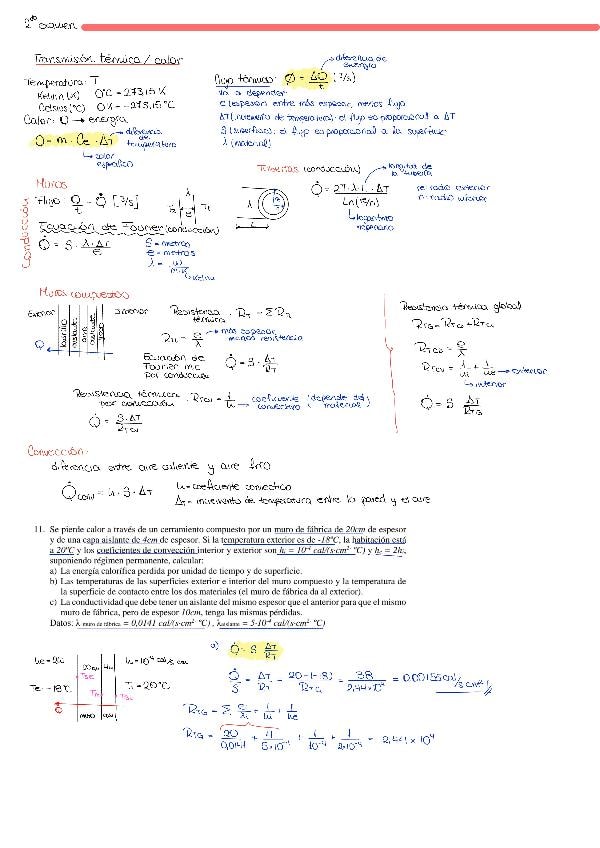 2do examen
Transmisión térmica / calor
Temperatura: T
Kelvin (K) 0°C = 273,15 K
Celsius (°C) 0 K = -273,15 °C
Calor: Q → energía
Q = m · Ce · ΔT
diferencia de temperatura
calor específico
flujo térmico: Φ = ΔQ / t (J/s)
diferencia de energía
va a depender:
e (espesor): entre más espesor, menos flujo
ΔT (incremento de temperatura): el flujo es proporcional a ΔT
S (superficie): el flujo es proporcional a la superficie
λ (material)
Conducción
Muros
Flujo Q / t = Q̇ [J/s]
Ecuación de Fourier (conducción)
Q̇ = S · λ · ΔT / e
S = metros
e = metros
λ = W / m·K
Tuberías (conducción)
Q̇ = 2π · λ · L · ΔT / Ln (re/ri)
longitud de la tubería
logaritmo neperiano
re radio exterior
ri radio interior
Muros compuestos
exterior interior
ladrillo
aislante
aire
ladrillo
yeso
Q
Resistencia térmica · RT = Σ Ri
Ri = e / λ → más espesor, menos resistencia
Ecuación de Fourier mc por conducción Q̇ = S · ΔT / RT
Resistencia térmica por convección · RTCV = 1 / h → coeficiente convectivo (depende del material)
Q̇ = S · ΔT / RTCV
Resistencia térmica global
RTG = RTCD + RTCV
RTCD = e / λ
RTCV = 1 / hi + 1 / he → exterior
interior
Q̇ = S ΔT / RTG
Convección:
diferencia entre aire caliente y aire frío
Q̇conv = h · S · ΔT
h = coeficiente convectico
ΔT = incremento de temperatura entre la pared y el aire
11. Se pierde calor a través de un cerramiento compuesto por un muro de fábrica de 20cm de espesor
y de una capa aislante de 4cm de espesor. Si la temperatura exterior es de -18ºC, la habitación está
a 20ºC y los coeficientes de convección interior y exterior son hi = 10-4 cal/(s·cm2 ºC) y he = 2hi,
suponiendo régimen permanente, calcular:
a) La energía calorífica perdida por unidad de tiempo y de superficie.
b) Las temperaturas de las superficies exterior e interior del muro compuesto y la temperatura de
la superficie de contacto entre los dos materiales (el muro de fábrica da al exterior).
c) La conductividad que debe tener un aislante del mismo espesor que el anterior para que el mismo
muro de fábrica, pero de espesor 10cm, tenga las mismas pérdidas.
Datos: λ muro de fábrica = 0,0141 cal/(s·cm ºC) , λaislante = 5·10-4 cal/(s·cm ºC)
a) Q̇ = S ΔT / RT
20cm 4cm
Te = -18°C
Ti = 20°C
Q̇
muro
Q̇ / S = ΔT / RT = 20 - (-18) / RTG = 38 / 2,44 · 10⁴ = 0,00155 cal/s cm² //
· RTG = Σ e / λ + 1 / hi + 1 / he
· RTG = 20 / 0,0141 + 4 / 5·10⁻⁴ + 1 / 10⁻⁴ + 1 / 2·10⁻⁴ = 2,441 × 10⁴